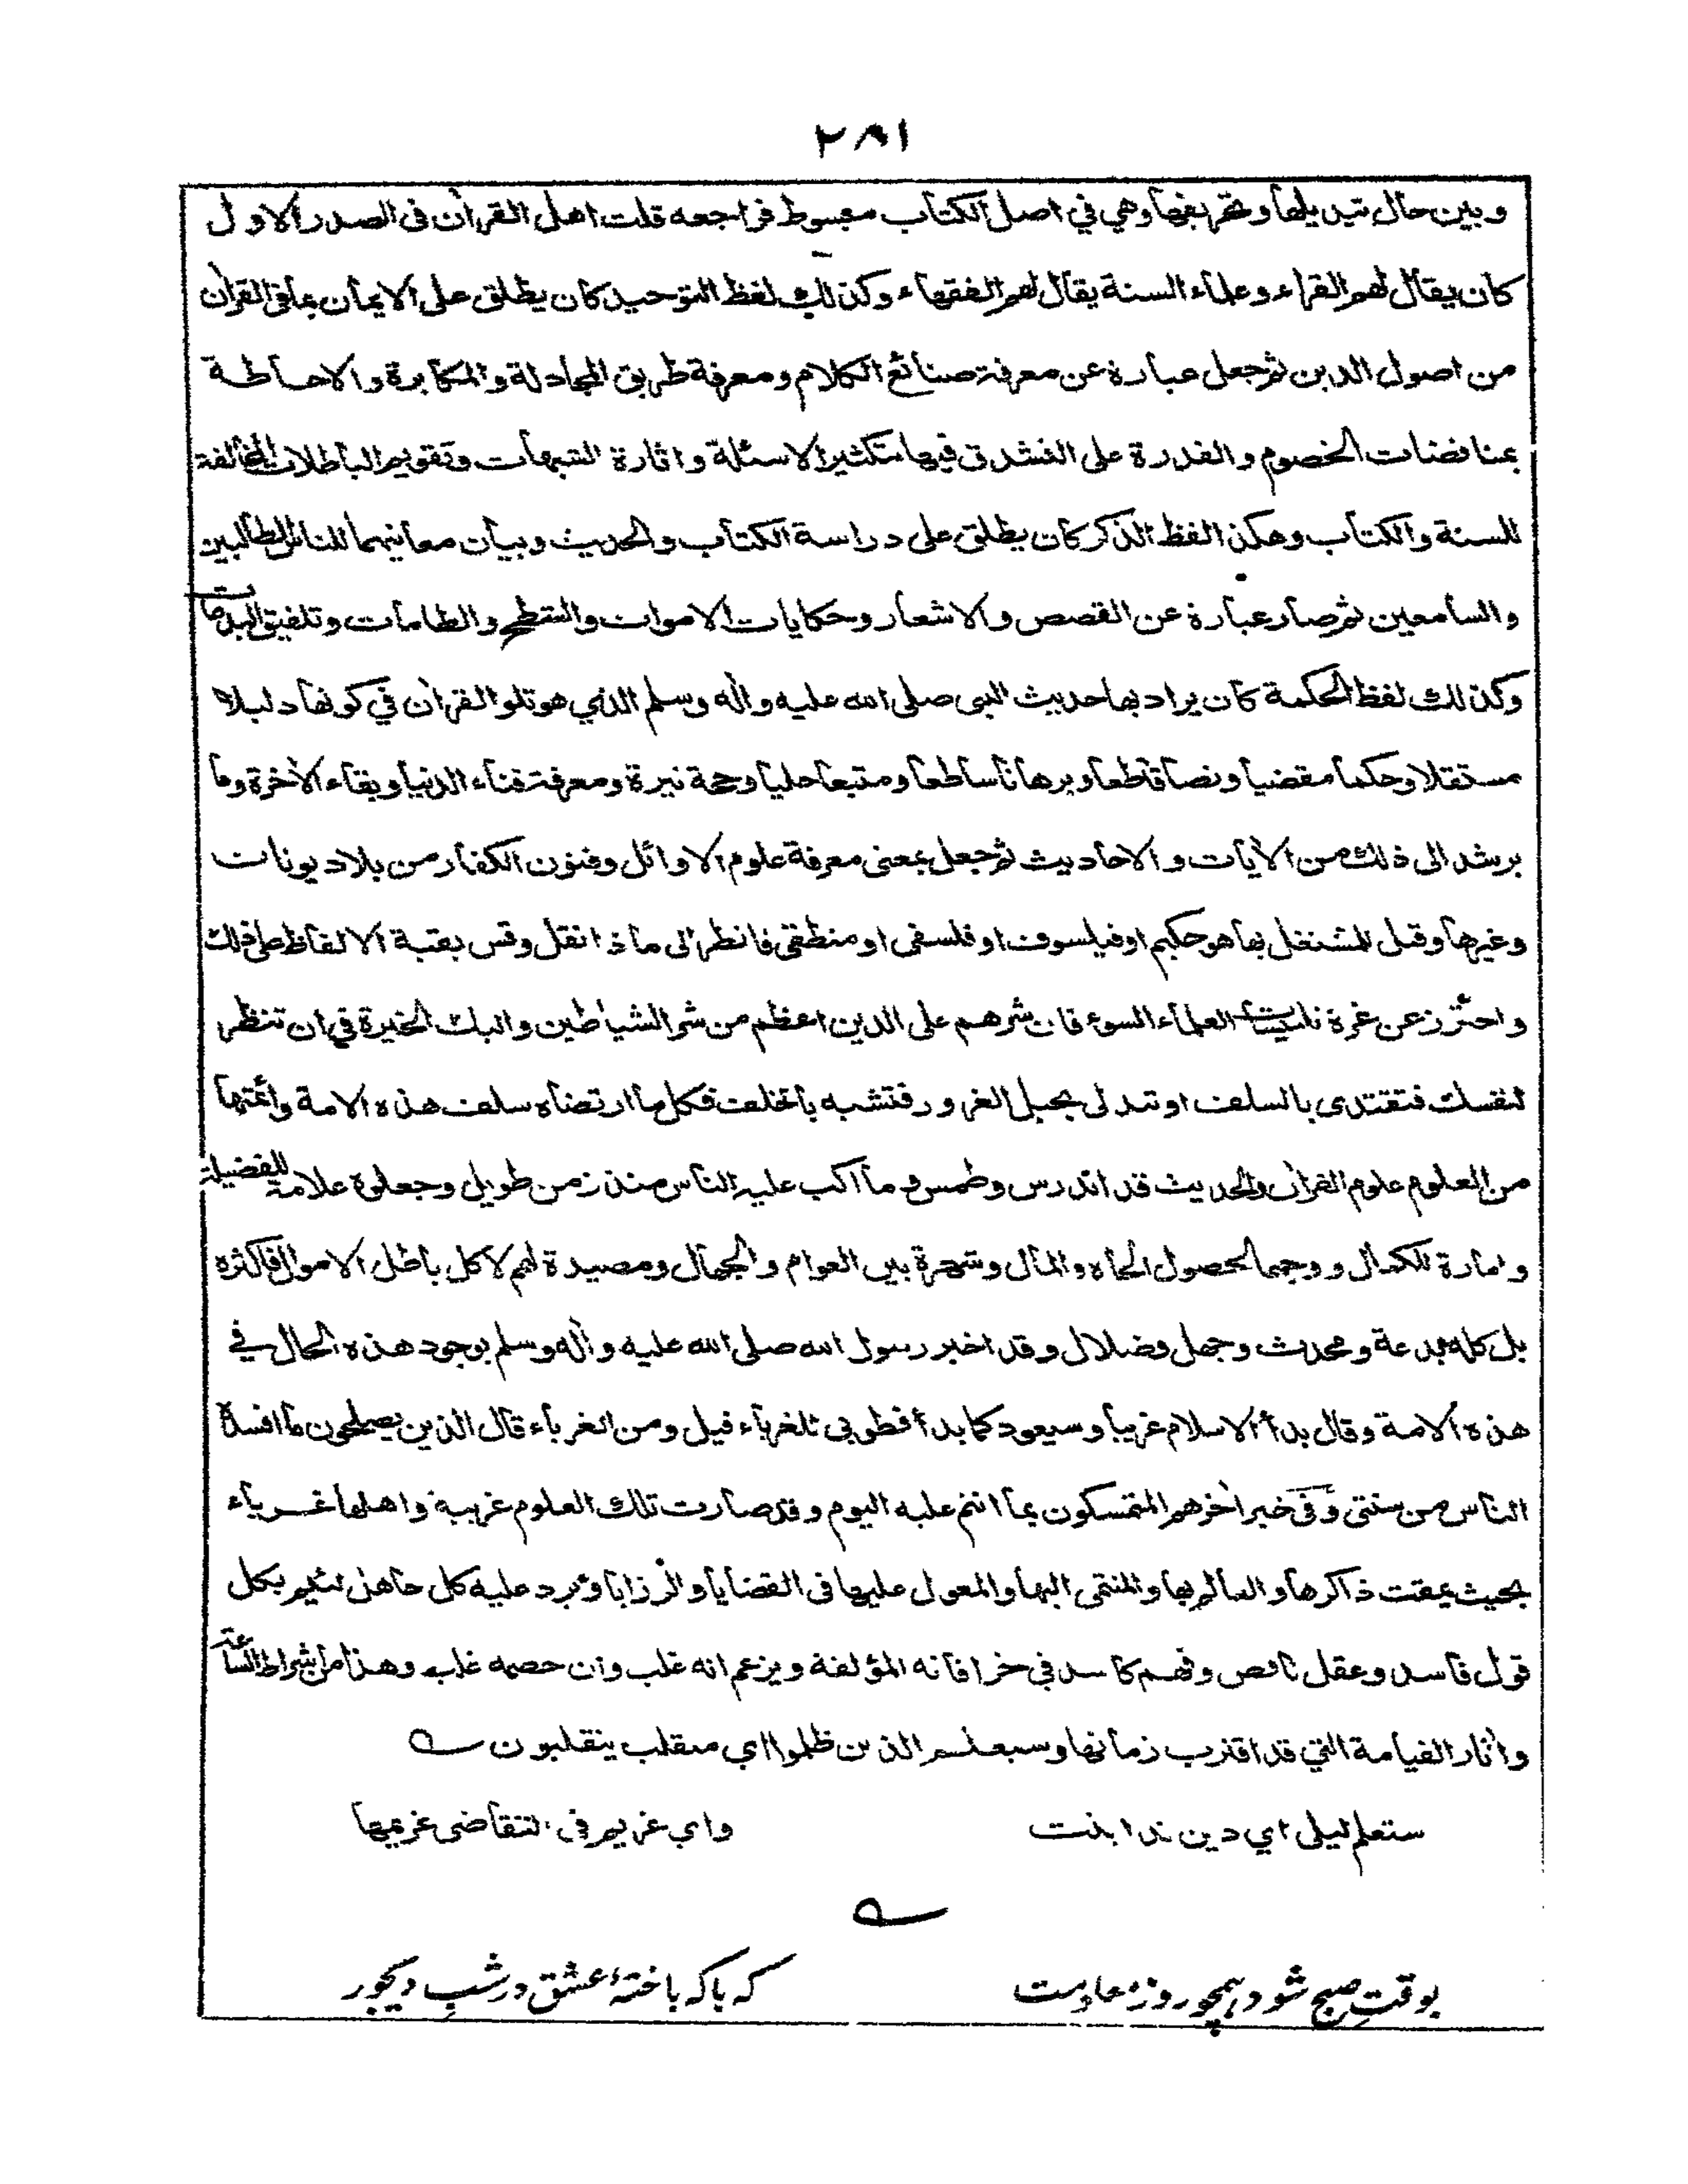 ٢٨١
وبين حال تبديلها وتحريفها وهي في اصل الكتاب مبسوط فراجعه قلت اهل القرآن فى الصدر الاول
كان يقال لهم القراء وعلماء السنة يقال لهم الفقهاء وكذلك لفظ التوحيد كان يطلق على الايمان بما فى القرآن
من اصول الدين ثم جعل عبارة عن معرفة صنائع الكلام ومعرفة طريق المجادلة والمكابرة والاحاطة
بمناقضات الخصوم والقدرة على التشدق فيها بتكثير الاسئلة واثارة الشبهات وتقويم الباطلات المخالفة
للسنة والكتاب وهكذا لفظ الذكر كان يطلق على دراسة الكتاب والحديث وبيان معانيهما للناس الطالبين
والسامعين ثم صار عبارة عن القصص والاشعار وحكايات الاموات والشطح والطامات وتلفيق البدعات
وكذلك لفظ الحكمة كان يراد بها حديث النبى صلى الله عليه وآله وسلم الذي هو تلو القرآن في كونها دليلا
مستقلا وحكما مقضيا ونصا قاطعا وبرهانا ساطعا ومتبعا جليا وحجة نيرة ومعرفة فناء الدنيا وبقاء الآخرة وما
يرشد الى ذلك من الآيات والاحاديث ثم جعل بمعنى معرفة علوم الاوائل وفنون الكفار من بلاد يونان
وغيرها وقيل للمشتغل بها هو حكيم او فيلسوف او فلسفى او منطقى فانظر الى ما ذا نقل وقس بقية الالفاظ على ذلك
واحترز عن غرة تلبيسات العلماء السوء فان شرهم على الدين اعظم من شر الشياطين واليك الخيرة في ان تنظر
لنفسك فتقتدى بالسلف او تتدلى بحبل الغرور فتتشبه بالخلف فكل ما ارتضاه سلف هذه الامة وائمتها
من العلوم علوم القرآن والحديث قد اندرس وطمس وما اكب عليه الناس منذ زمن طويل وجعلوه علامة للفضيلة
وامارة للكمال ووجها لحصول الجاه والمال وشهرة بين العوام والجهال ومصيدة لهم لاكل باطل الاموال فاكثره
بل كله بدعة ومحدث وجهل وضلال وقد اخبر رسول الله صلى الله عليه وآله وسلم بوجود هذه الحال في
هذه الامة وقال بدأ الاسلام غريبا وسيعود كما بدأ فطوبى للغرباء قيل ومن الغرباء قال الذين يصلحون ما افسده
الناس من سنتى وفى خبر آخر هم المتمسكون بما انتم عليه اليوم وقد صارت تلك العلوم غريبة واهلها غرباء
بحيث يمقت ذاكرها والعالم بها والمنتمى اليها والمعول عليها فى القضايا والرزايا ويرد عليه كل جاهل لئيم بكل
قول فاسد وعقل ناقص وفهم كاسد في خرافاته المؤلفة ويزعم انه غلب وان خصمه غلب وهذا من اشراط الساعة
وآثار القيامة التي قد اقترب زمانها وسيعلم الذين ظلموا اي منقلب ينقلبون
ستعلم ليلى اي دين تداينت واي غريم في التقاضى غريمها
بوقتِ صبح شود همچو روز معلومت که باکه باختهٔ عشق در شبِ دیجور